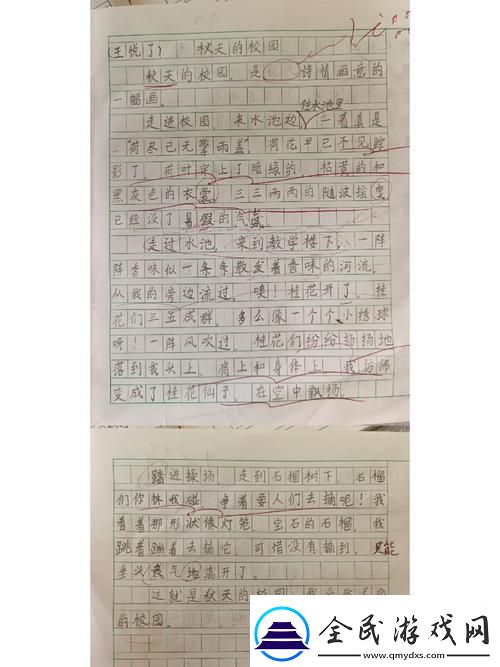 (王悦了) 秋天的校园
秋天的校园，是诗情画意的
一幅画。
走进校园，来水池边，往水池里一看真是
“荷尽已无擎雨盖”，荷花早已不见踪
影了，荷叶穿上了暗绿的、枯黄的和
黑灰色的衣裳，三三两两的随波摇曳，
已经没了暑假的气氛。
走过水池，来到教学楼下，一阵
阵香味似一条条散发着香味的河流，
从我的旁边流过。噢！桂花开了，桂
花们三五成群，多么像一个个小绣球
呀！一阵风吹过，桂花们纷纷扬扬地
落到我头上，肩上和身体上，我仿佛
变成了桂花仙子，在空中飘扬。
踏进操场，走到石榴树下，石榴
们你挤我碰，争着要人们去摘呢！我
看着那形状像灯笼，宝石的石榴，我
跳着蹦着去摘它，可惜没有摘到，只能
垂头丧气地离开了。
这就是秋天的校园，我
的校园。
全民游戏网
www.qmydxs.com